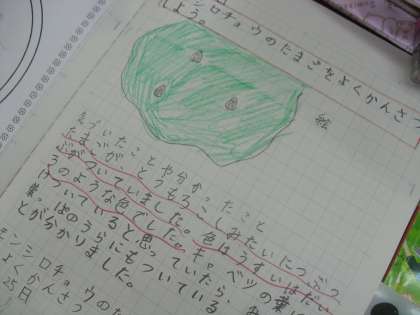 シロチョウのたまごをよくかんさつ
しよう。
絵
気づいたことや分かったこと
たまごが、とうもろこしみたいにつぶつ
ぶがついていました。色はうすいはだい
ろのような色でした。キャベツの葉に
だけついていると思っていたら、
葉っぱのうらにもついている
とが分かりました。
モンシロチョウの
よくかんさつ
25日